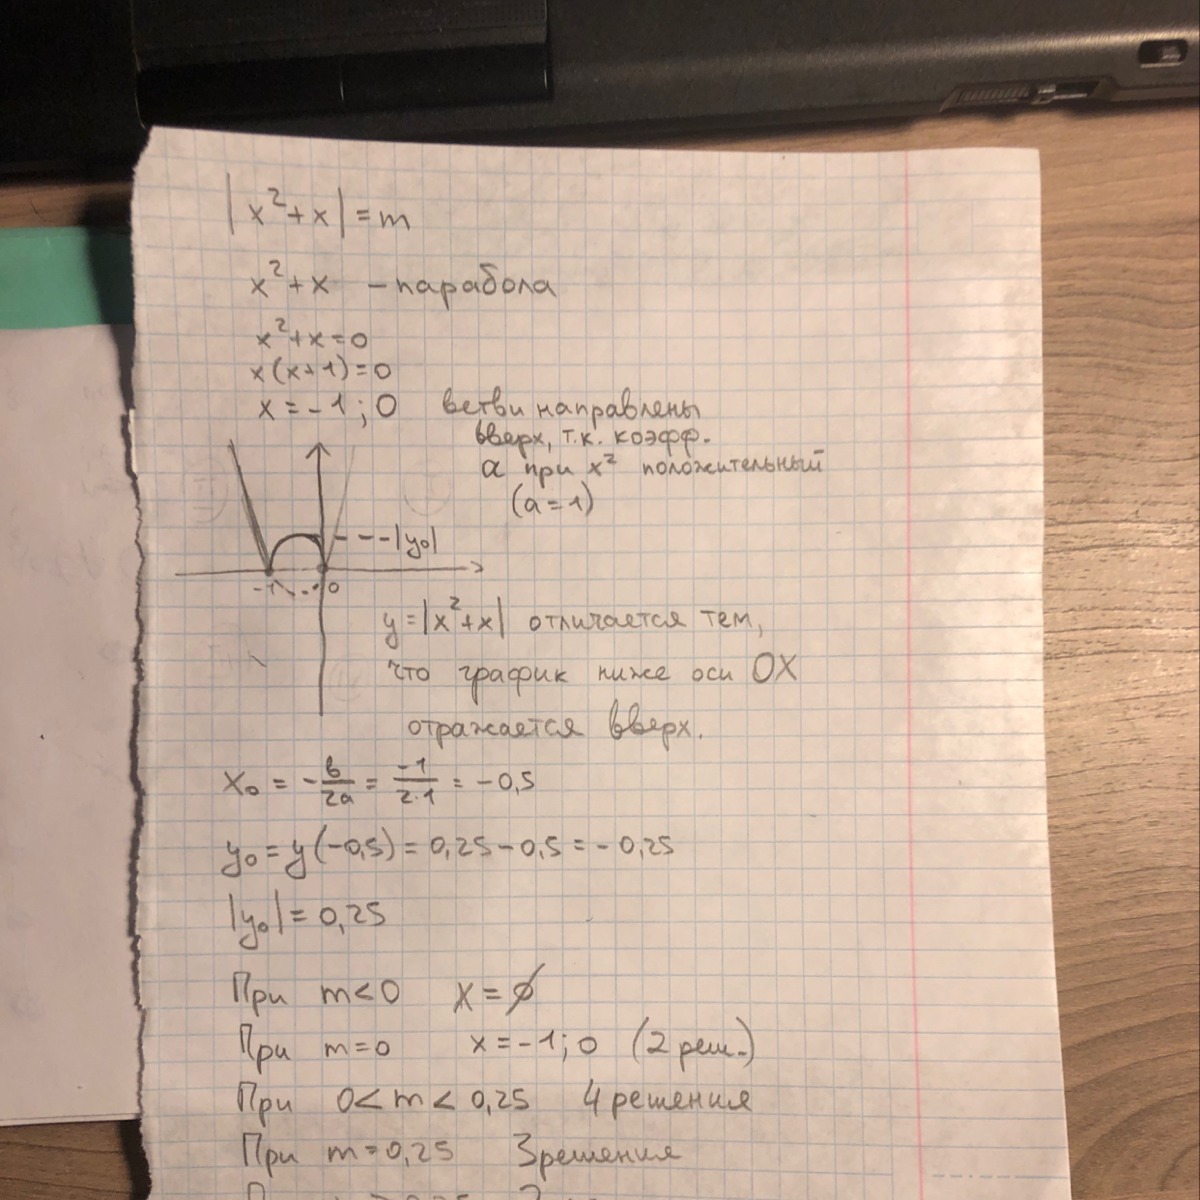 |x²+x|=m
x²+x – парабола
x²+x=0
x(x+1)=0
x=-1;0 ветви направлены
вверх, т.к. коэфф.
a при x² положительный
(a=1)
|y₀|
-1 0
y=|x²+x| отличается тем,
что график ниже оси OX
отражается вверх.
x₀ = -b/2a = -1/2·1 = -0,5
y₀=y(-0,5)=0,25-0,5=-0,25
|y₀|=0,25
При m<0 x=∅
При m=0 x=-1;0 (2 реш.)
При 0<m<0,25 4 решения
При m=0,25 3решения